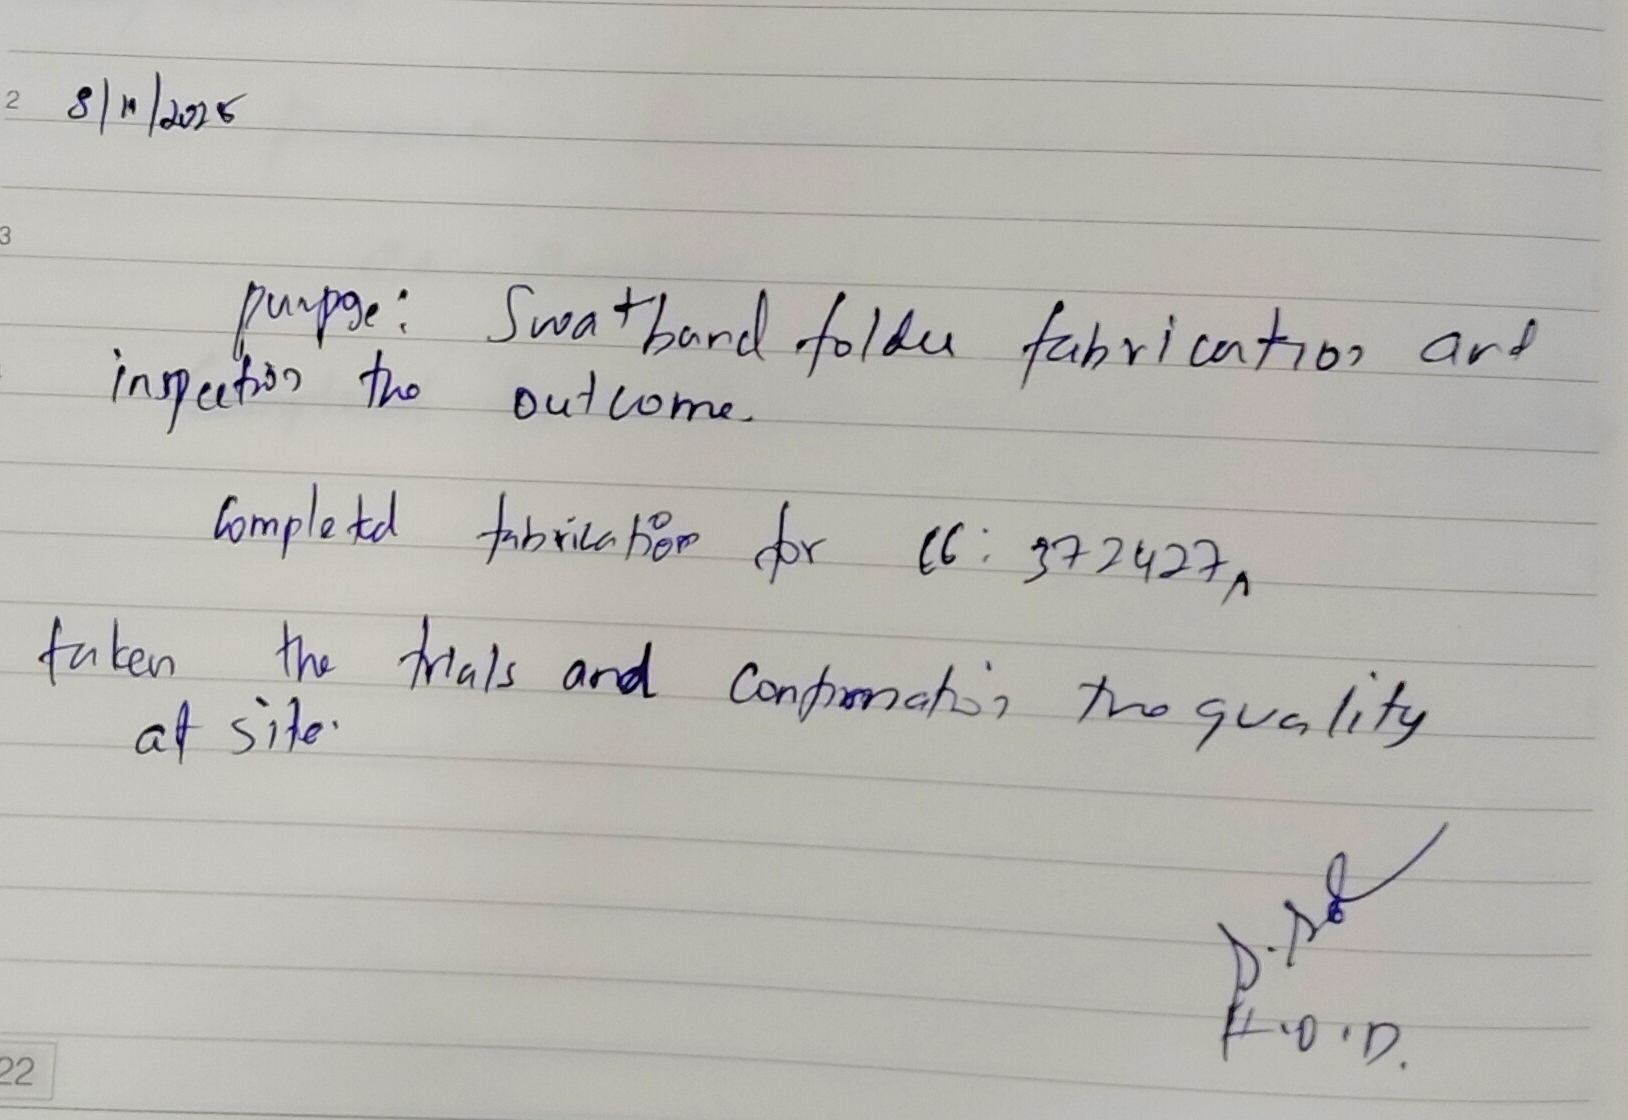 2 8/11/2025
3
purpose: Swatband folder fabrication and
inspection the outcome.
Completed fabrication for CC: 372427,
taken the trials and Confirmation the quality
at site.
H.O.D.
22